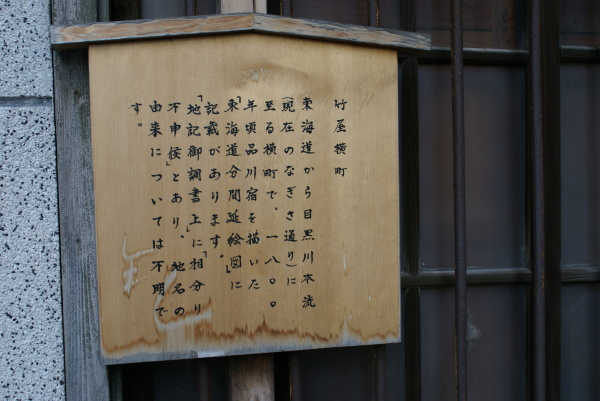 竹屋横町
東海道から目黒川本流
(現在のなぎさ通り)に
至る横町で、一八〇〇
年頃品川宿を描いた
「東海道分間延絵図」に
記載があります。
「地記御調書上」に「相分り
不申候」とあり、地名の
由来については不明で
す。